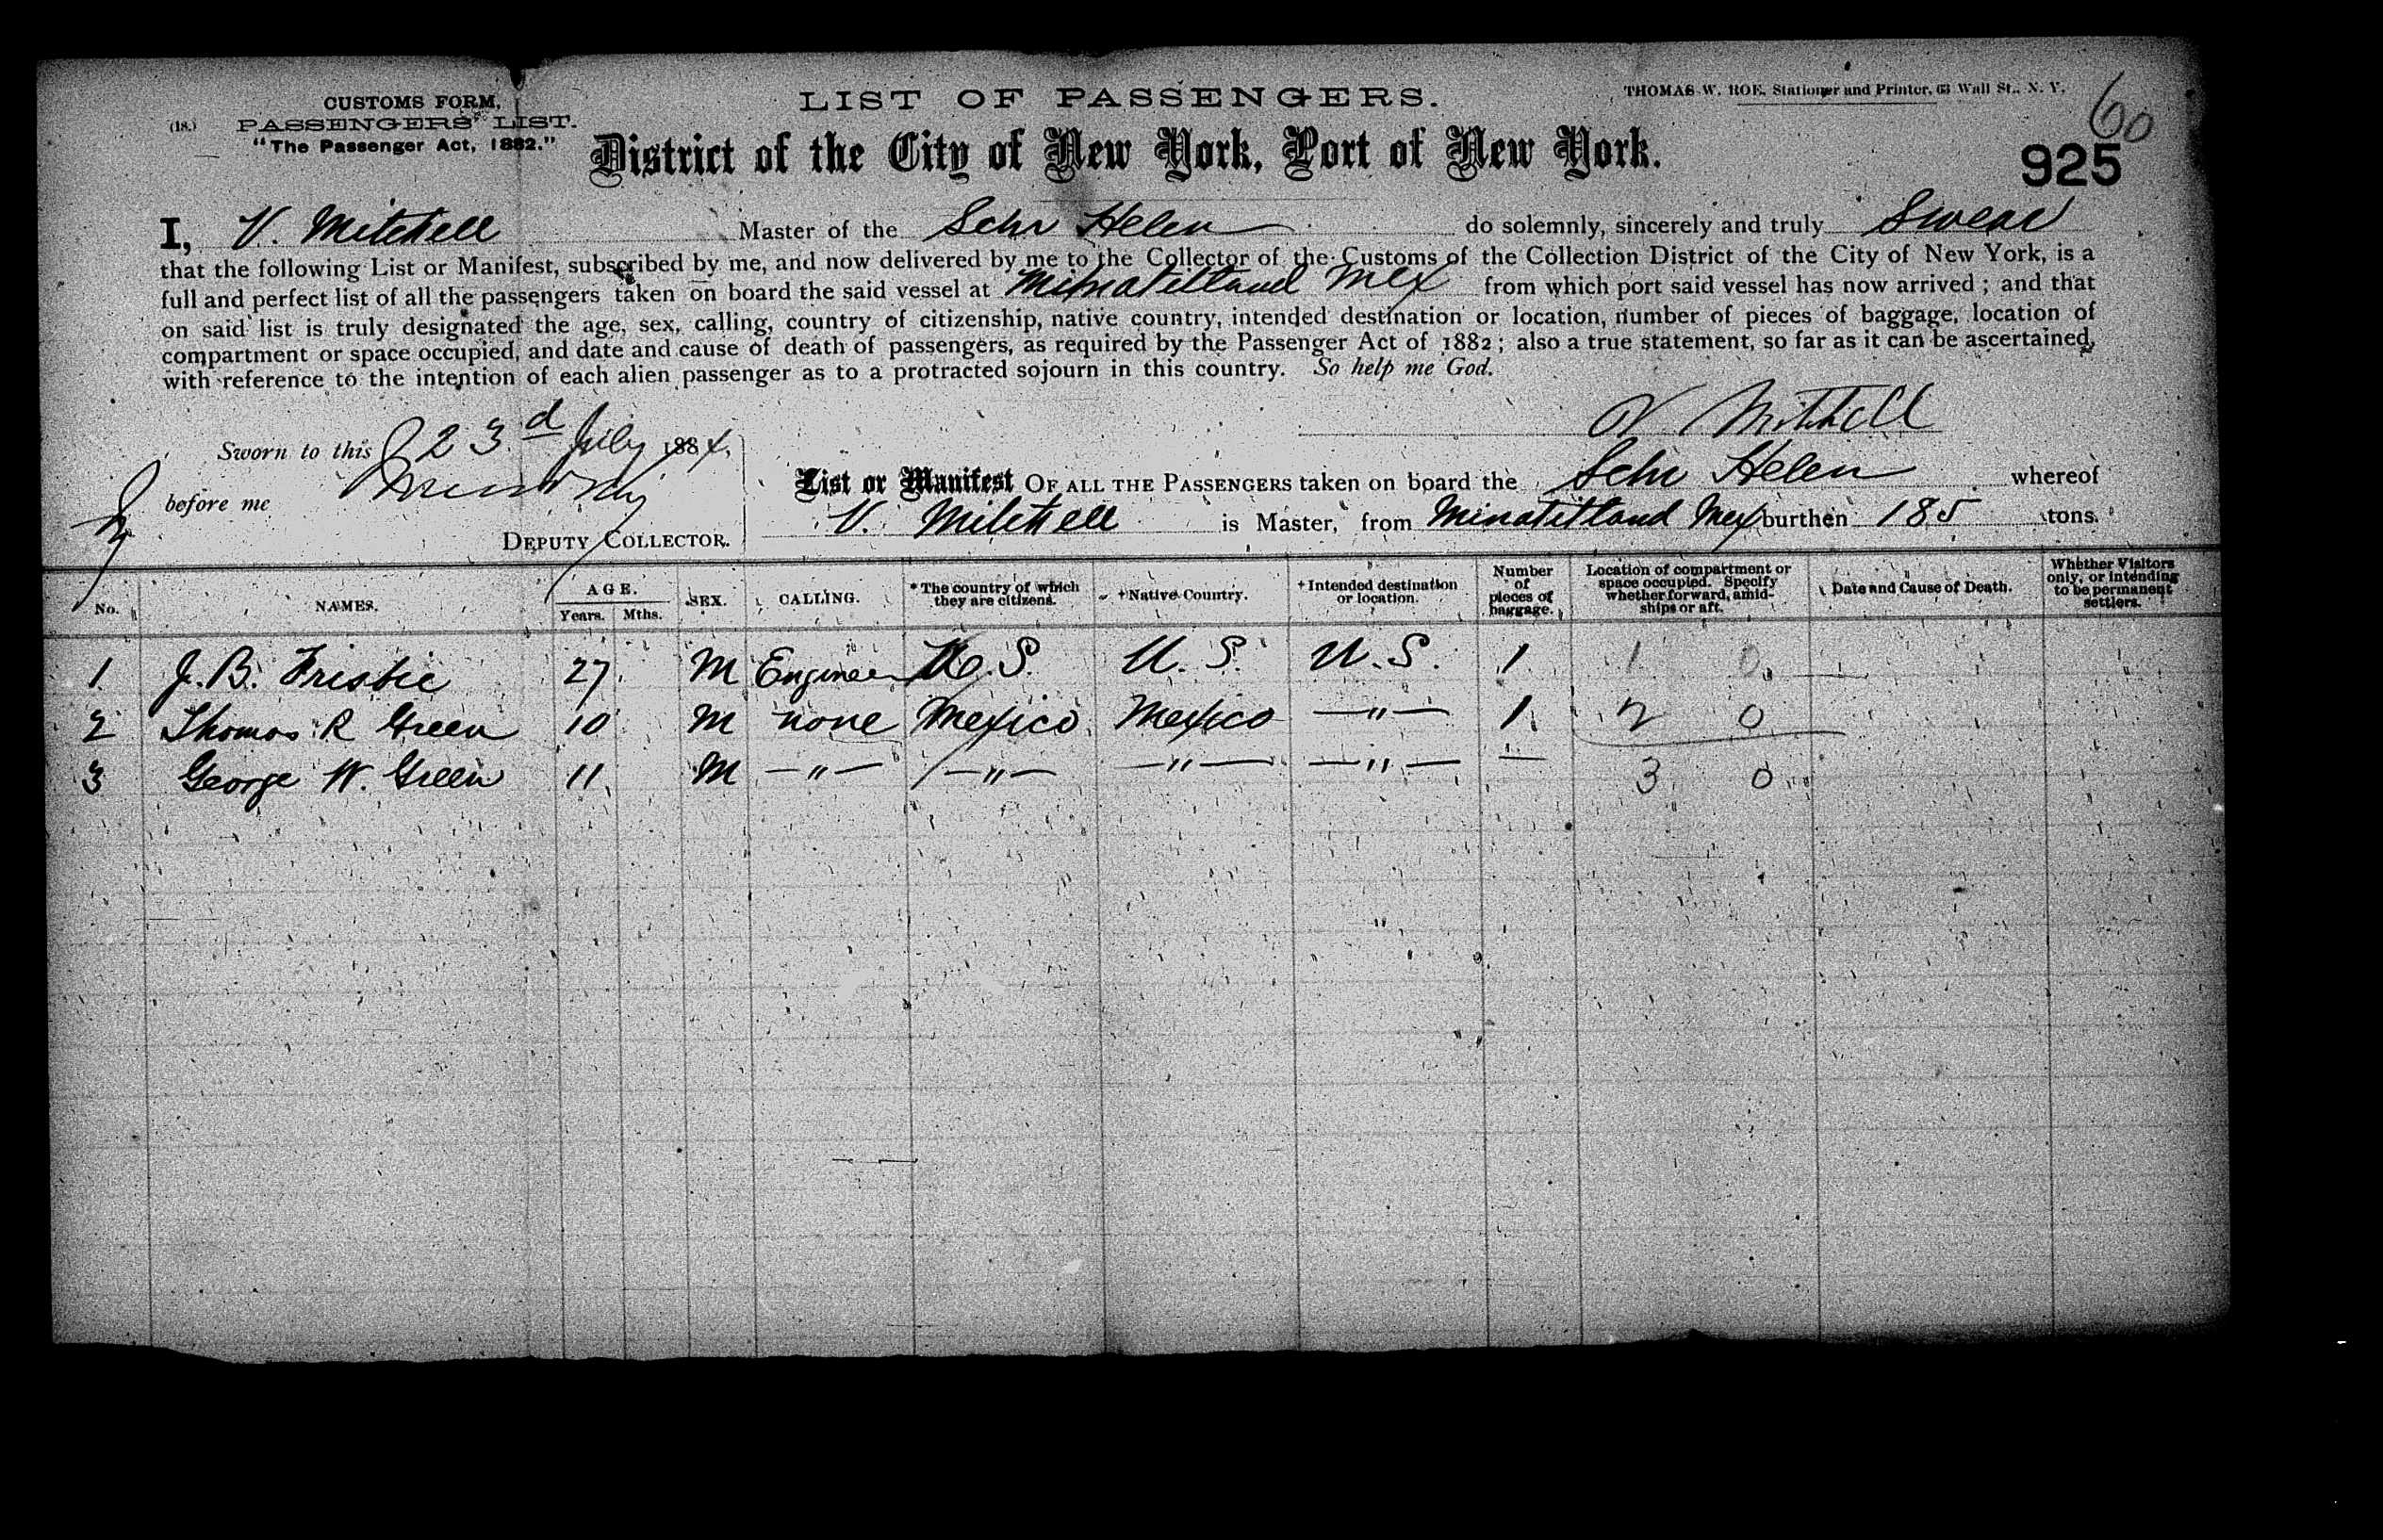 CUSTOMS FORM,
(18.) PASSENGERS' LIST.
"The Passenger Act, 1882."
LIST OF PASSENGERS.
THOMAS W. ROE, Stationer and Printer, 63 Wall St., N. Y.
60
District of the City of New York, Port of New York.
925
I, V. Mitchell Master of the Schr Helen do solemnly, sincerely and truly Swear
that the following List or Manifest, subscribed by me, and now delivered by me to the Collector of the Customs of the Collection District of the City of New York, is a
full and perfect list of all the passengers taken on board the said vessel at Minatitland Mex from which port said vessel has now arrived ; and that
on said list is truly designated the age, sex, calling, country of citizenship, native country, intended destination or location, number of pieces of baggage, location of
compartment or space occupied, and date and cause of death of passengers, as required by the Passenger Act of 1882 ; also a true statement, so far as it can be ascertained,
with reference to the intention of each alien passenger as to a protracted sojourn in this country. So help me God.
V Mitchell
Sworn to this 23d July 1884,
before me
DEPUTY COLLECTOR.
List or Manifest OF ALL THE PASSENGERS taken on board the Schr Helen whereof
V. Mitchell is Master, from Minatitland Mex burthen 185 tons.
No. NAMES. AGE. Years. Mths. SEX. CALLING. *The country of which they are citizens. +Native Country. +Intended destination or location. Number of pieces of baggage. Location of compartment or space occupied. Specify whether forward, amidships or aft. Date and Cause of Death. Whether Visitors only, or intending to be permanent settlers.
1 J. B. Frisbie 27 M Engineer U.S. U.S. U.S. 1 1 0
2 Thomas R Green 10 M none Mexico Mexico —"— 1 2 0
3 George W. Green 11 M —"— —"— —"— —"— — 3 0